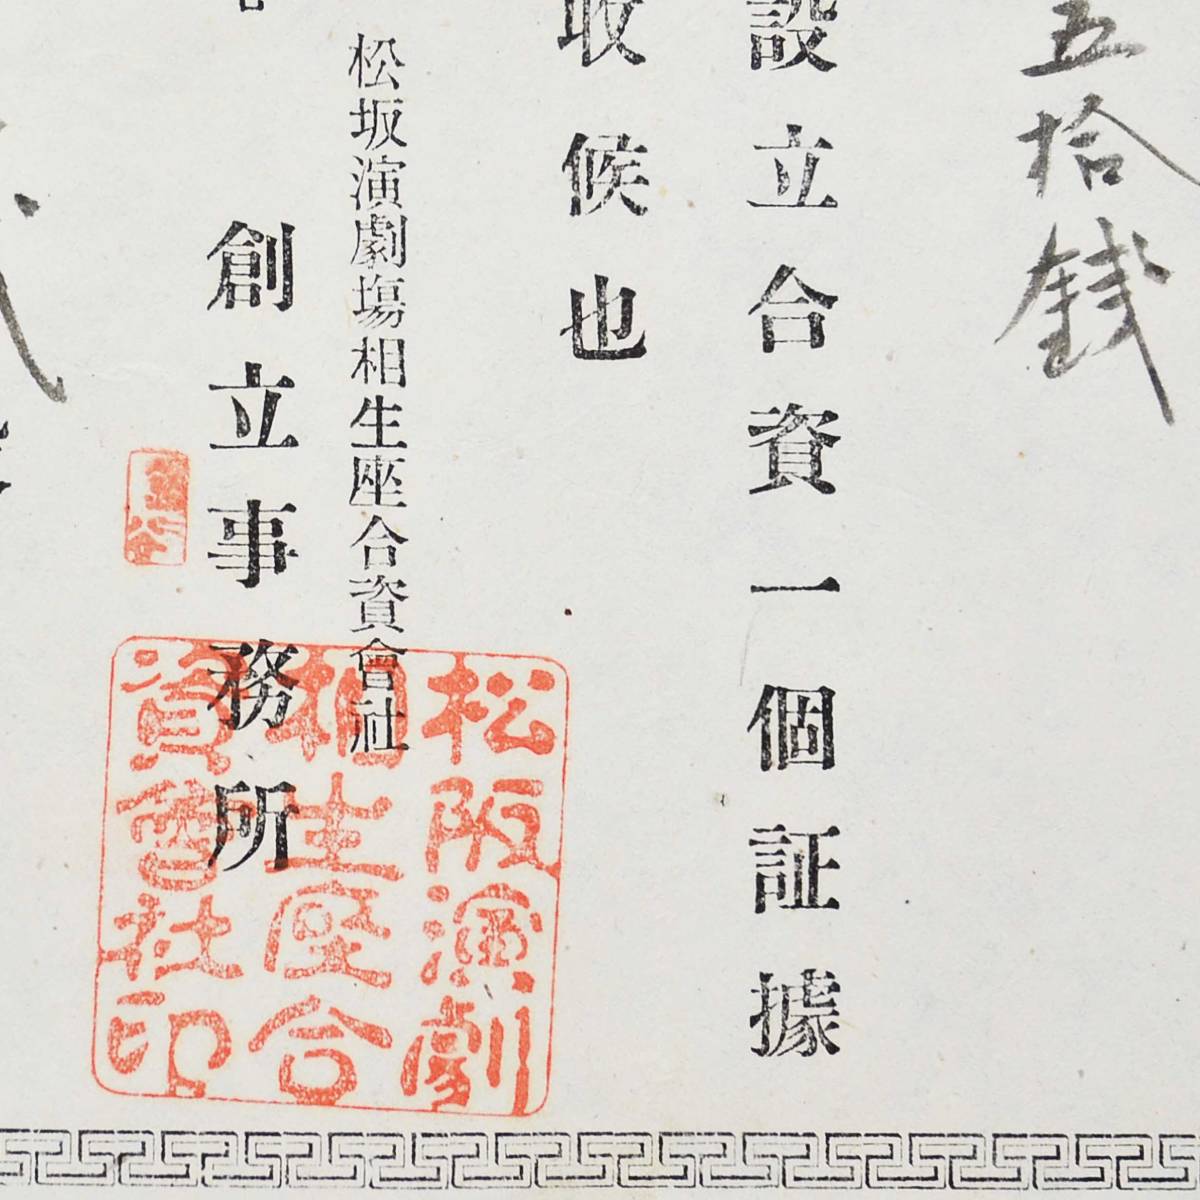 五拾錢
設立合資一個証據
收候也
松坂演劇塲相生座合資會社
創立事務所
松阪演劇
相生座合
資會社印